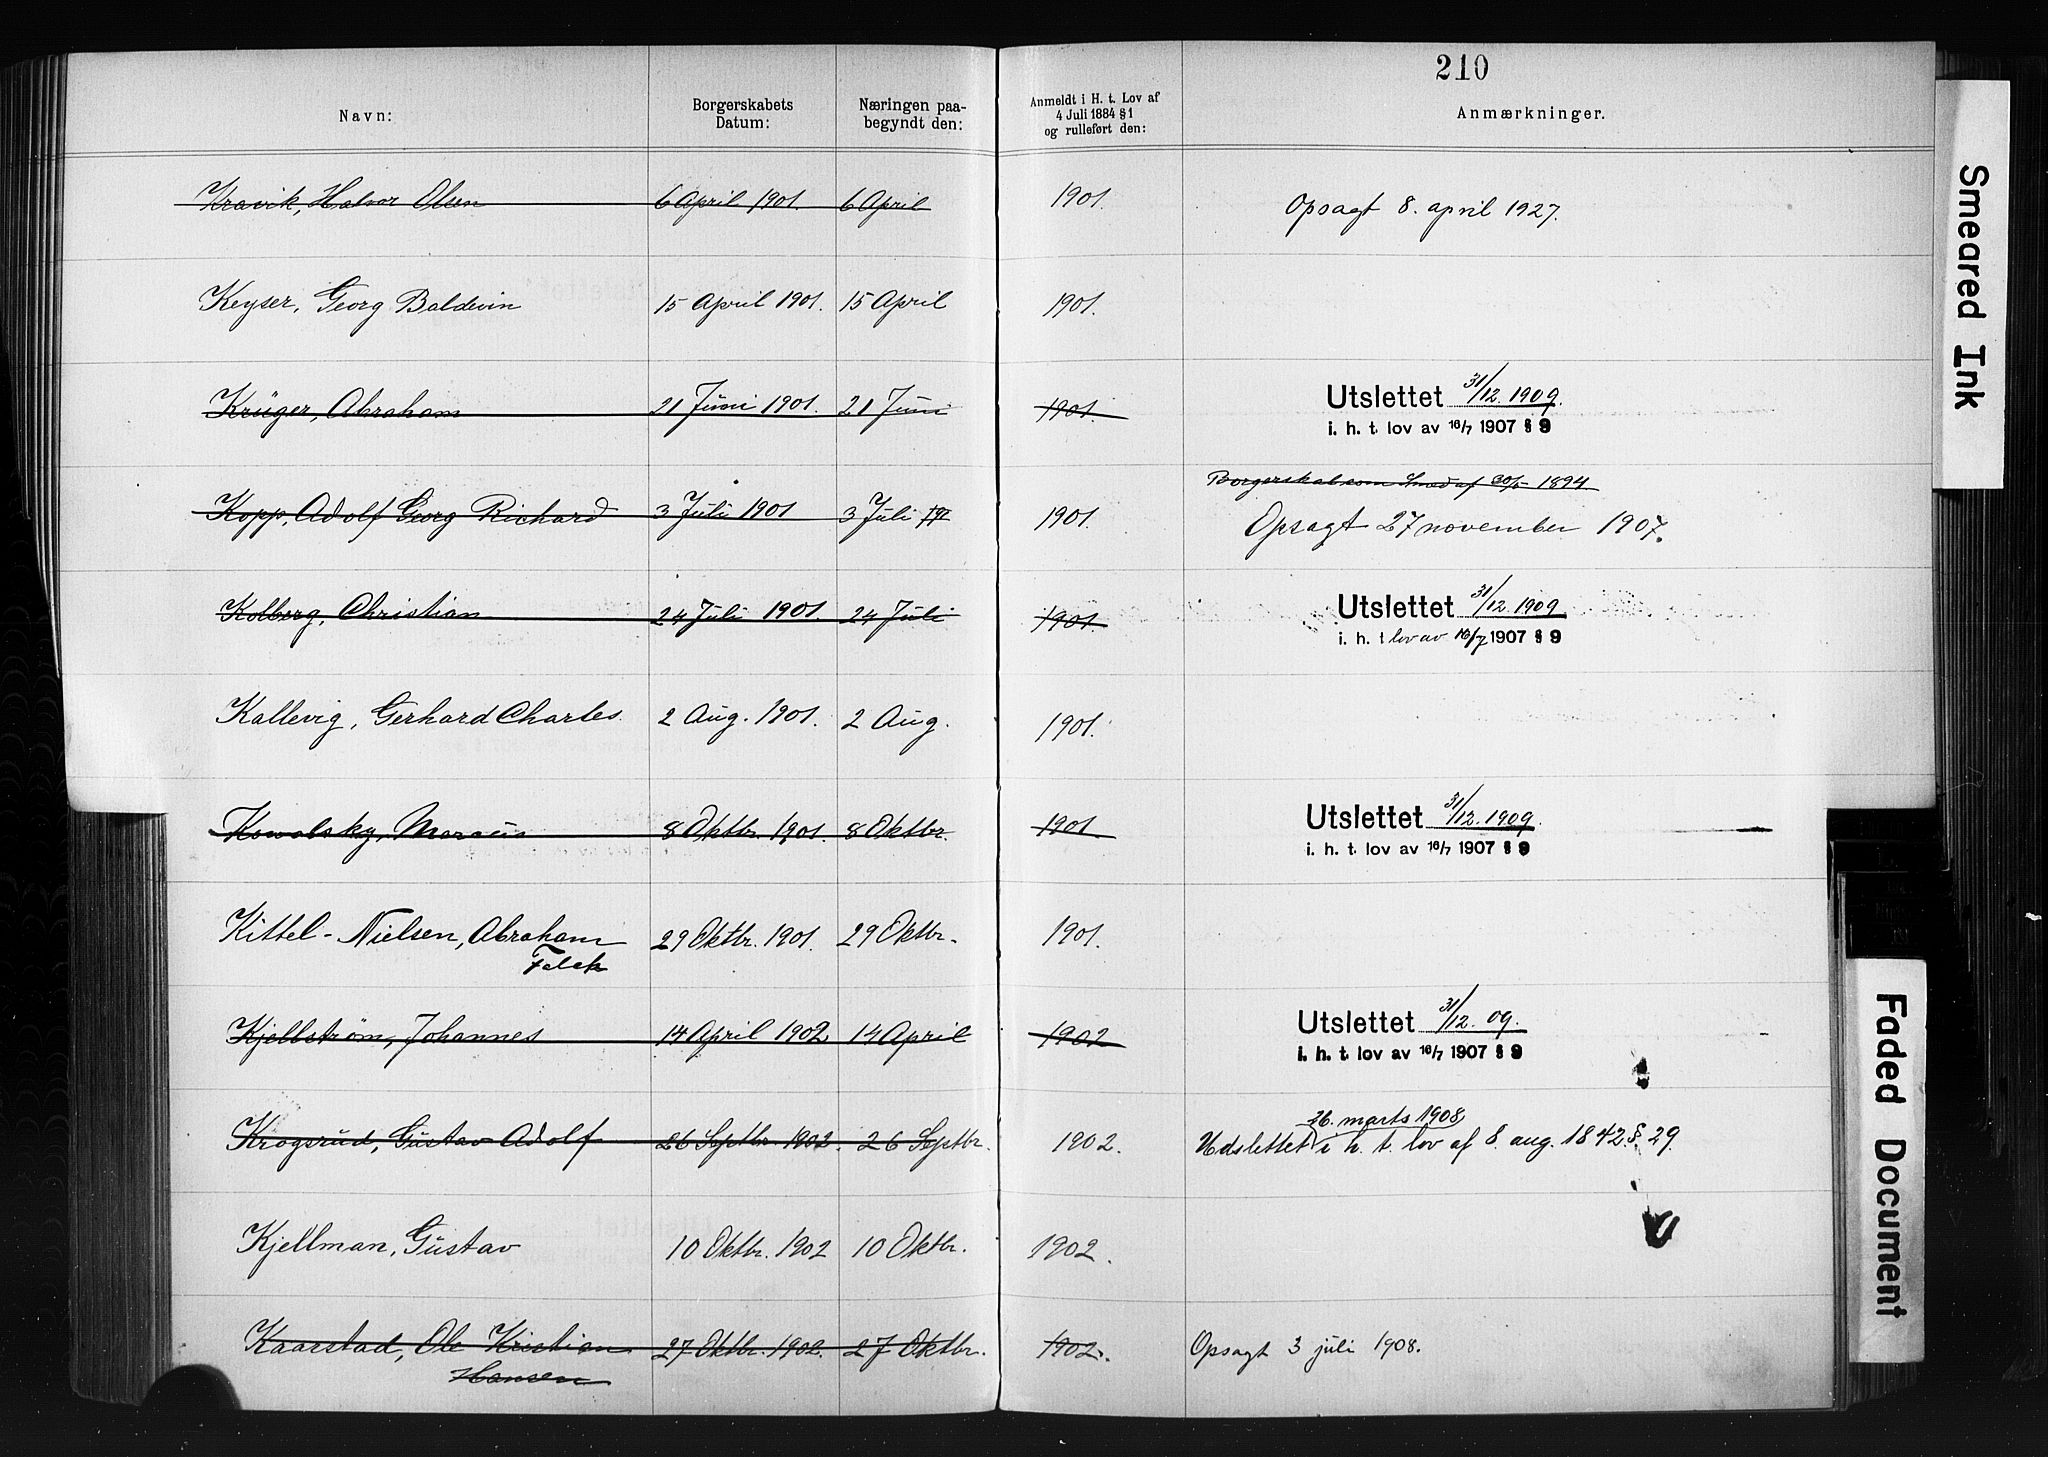 210
Navn: Borgerskabets Datum: Næringen paabegyndt den: Anmeldt i H. t. Lov af 4 Juli 1884 § 1 og rulleført den: Anmærkninger.
Kravik, Halvor Olsen 6 April 1901. 6 April 1901. Opsagt 8. april 1927.
Keyser, Georg Baldewin 15 April 1901. 15 April 1901.
Krüger, Abraham 21 Juni 1901. 21 Juni 1901. Utslettet 31/12. 1909.
i. h. t. lov av 16/7 1907 § 9
Borgerskab som Smed af 30/5 1894
Kopp, Adolf Georg Richard 3 Juli 1901 3 Juli 1901. Opsagt 27 november 1907.
Kolberg, Christian 24 Juli 1901. 24 Juli 1901. Utslettet 31/12. 1909.
i. h. t lov av 16/7 1907 § 9
Kallevig, Gerhard Charles. 2 Aug. 1901. 2 Aug. 1901.
Kowalsky, Marcus 8 Oktbr. 1901. 8 Oktbr. 1901. Utslettet 31/12. 1909.
i. h. t. lov av 16/7 1907 § 9
Kittel-Nielsen, Abraham 29 Oktbr. 1901. 29 Oktbr. 1901.
Falck
Kjellstrøm, Johannes 14 April 1902 14 April 1902 Utslettet 31/12. 09.
i. h. t. lov av 16/7 1907 § 9
26. marts 1908
Krogsrud, Gustav Adolf 26 Septbr. 1902. 26 Septbr. 1902. Udslettet i h. t. lov af 8. aug. 1842 § 29.
Kjellman, Gustav 10 Oktbr. 1902 10 Oktbr. 1902.
Kaarstad, Ole Kristian 27 Oktbr. 1902. 27 Oktbr. 1902. Opsagt 3 juli 1908.
Hansen
Smeared Ink
Faded Document